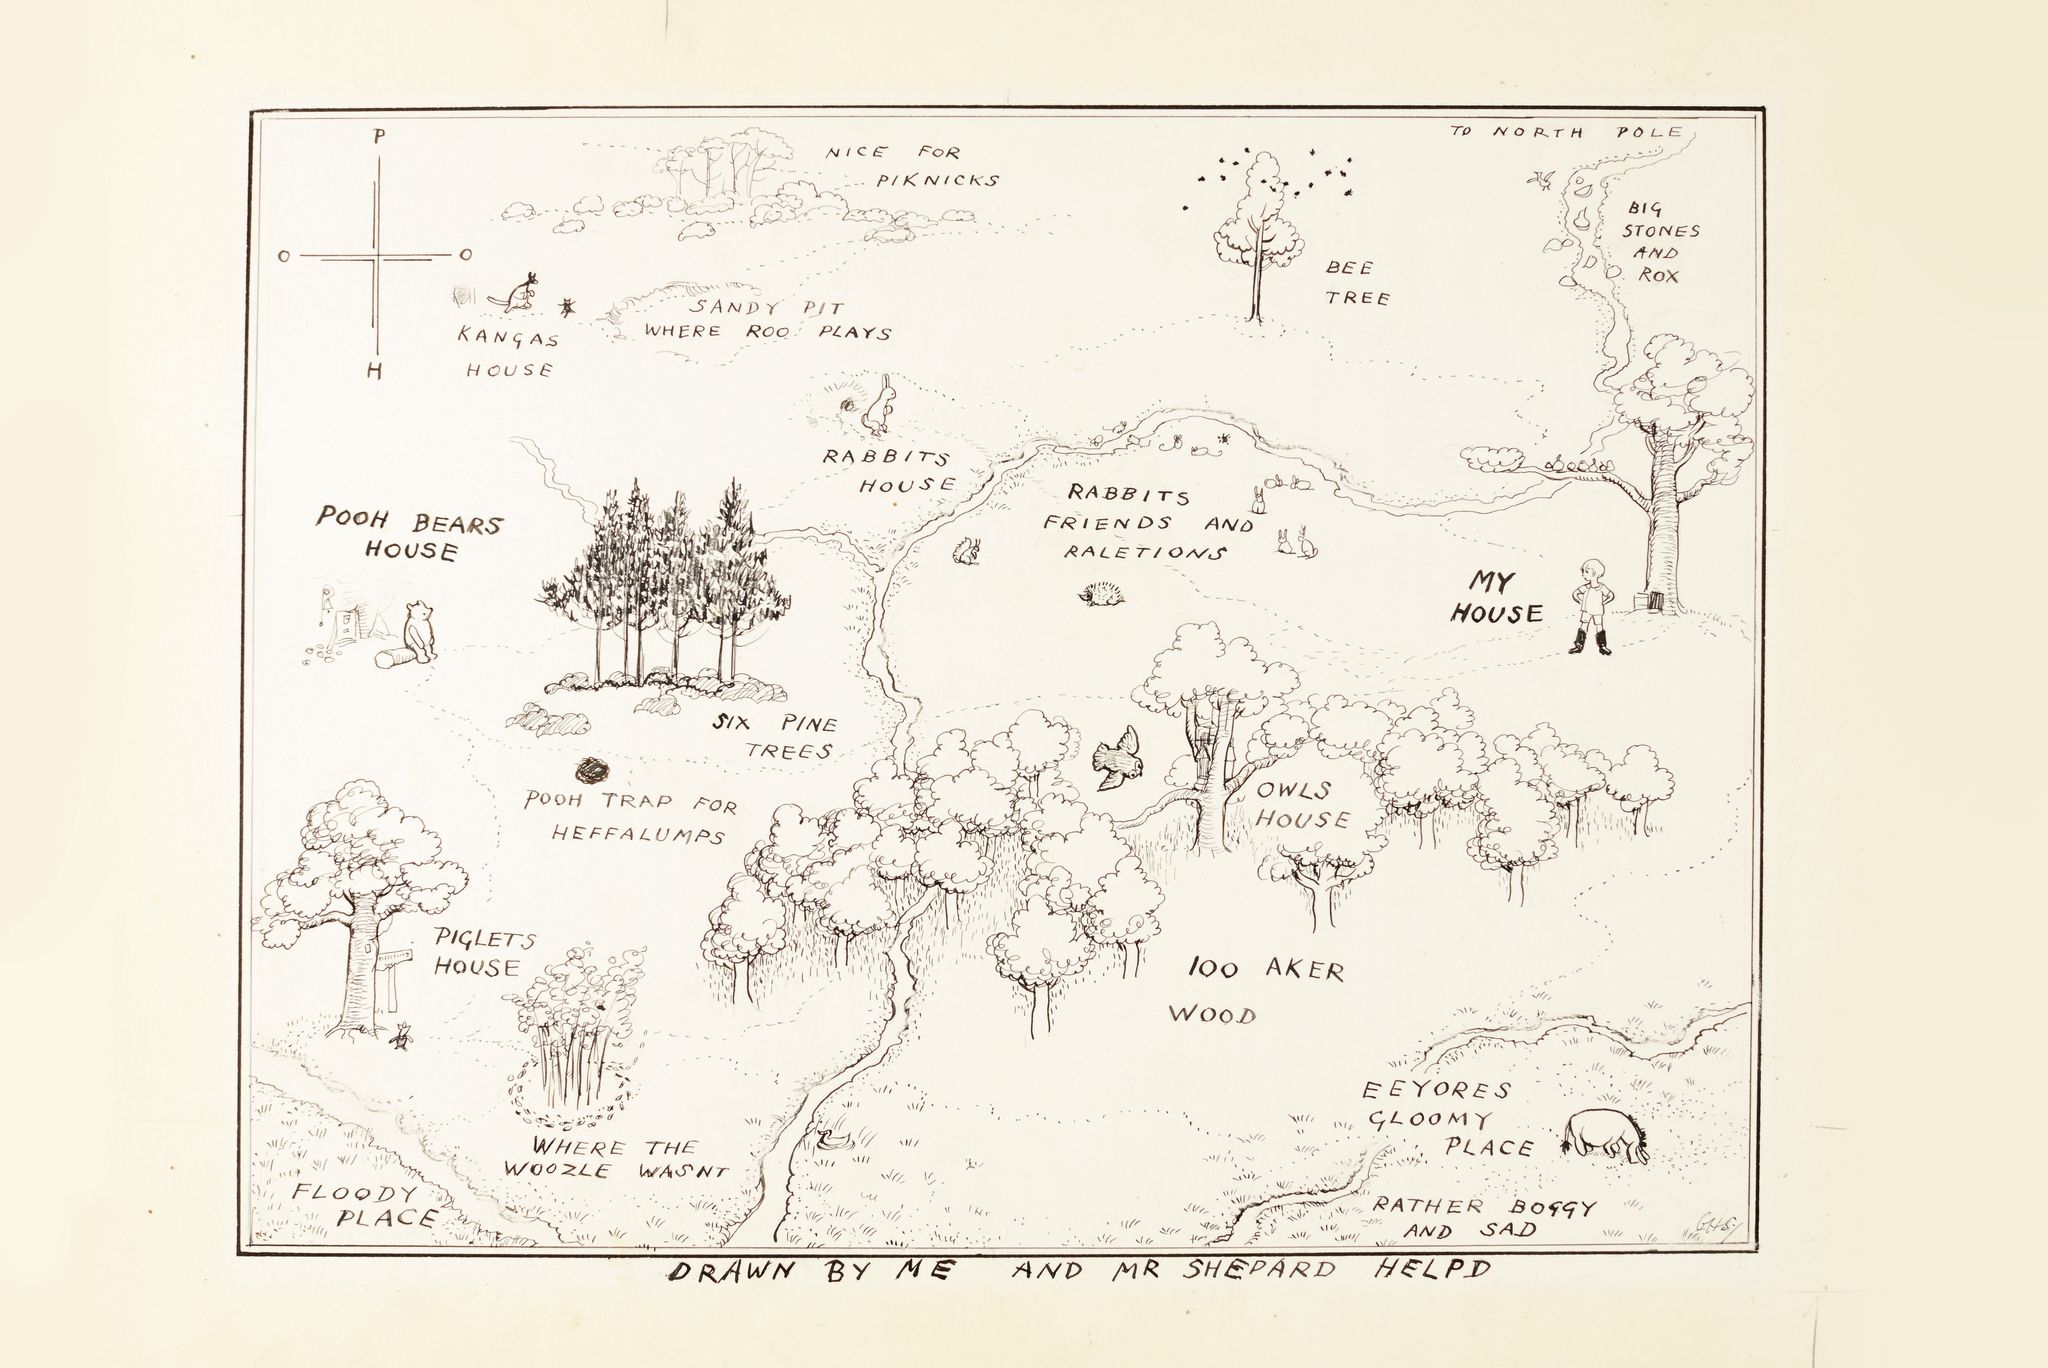 P
O
O
H
NICE FOR
PIKNICKS
TO NORTH POLE
BIG
STONES
AND
ROX
BEE
TREE
KANGAS
HOUSE
SANDY PIT
WHERE ROO PLAYS
RABBITS
HOUSE
RABBITS
FRIENDS AND
RALETIONS
POOH BEARS
HOUSE
MY
HOUSE
SIX PINE
TREES
POOH TRAP FOR
HEFFALUMPS
OWLS
HOUSE
PIGLETS
HOUSE
100 AKER
WOOD
WHERE THE
WOOZLE WASNT
FLOODY
PLACE
EEYORES
GLOOMY
PLACE
RATHER BOGGY
AND SAD
DRAWN BY ME AND MR SHEPARD HELPD